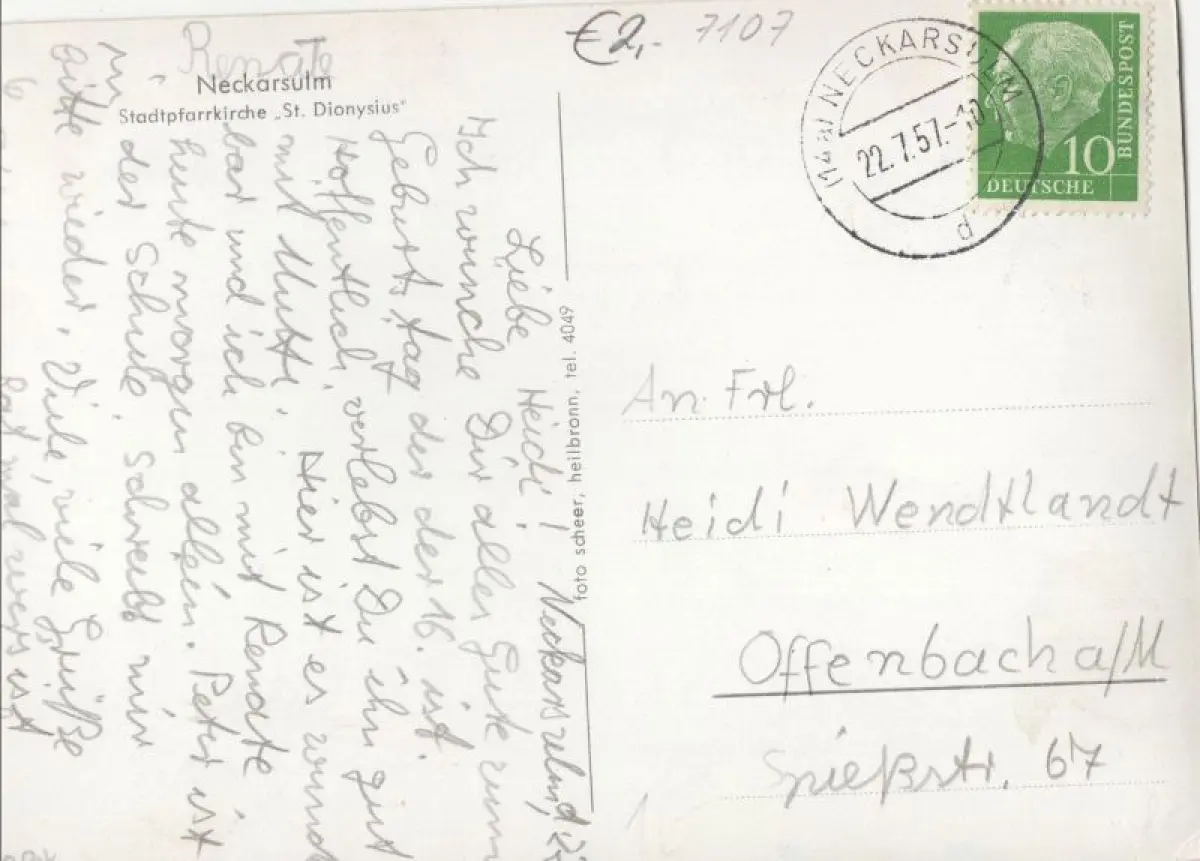 €2,- 7107
Neckarsulm
Stadtpfarrkirche „St. Dionysius"
(14a) NECKARSULM
22.7.57.-10
d
10
DEUTSCHE
BUNDESPOST
foto scheer, heilbronn, tel. 4049
Neckarsulm, d.
Liebe Heidi!
Ich wünche Dir alles Gute zum
Geburtstag der der 16. ist.
Hoffentlich verlebst Du ihn gut
mit Mutti. Hier ist es wund
bar und ich bin mit Renate
heute morgen allein. Peter ist
in der Schule. Schreib mir
bitte wieder. Viele, viele Grüße
Renate
Rat mal wers ist
An Frl.
Heidi Wendtlandt
Offenbach a/M
Spießstr. 67